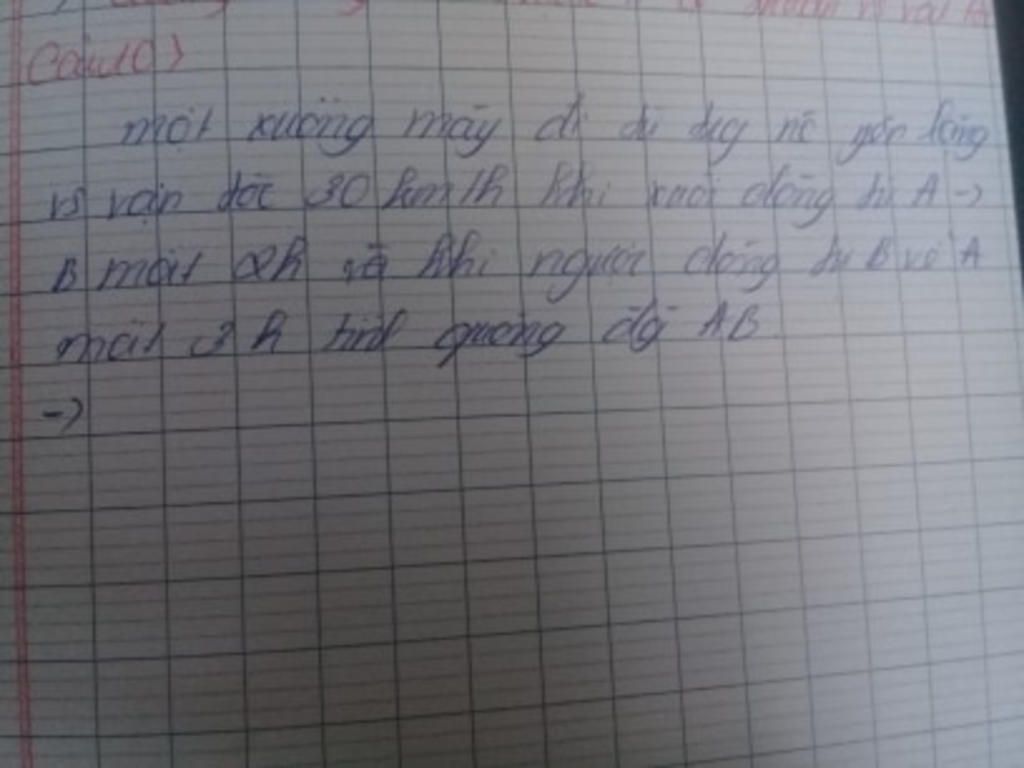 Câu10)
một xuồng máy đi
vs vận tốc 30 km/h khi xuôi dòng từ A →
B mất 2h và khi ngược dòng từ B về A
mất 3h tính quãng đg AB
→)